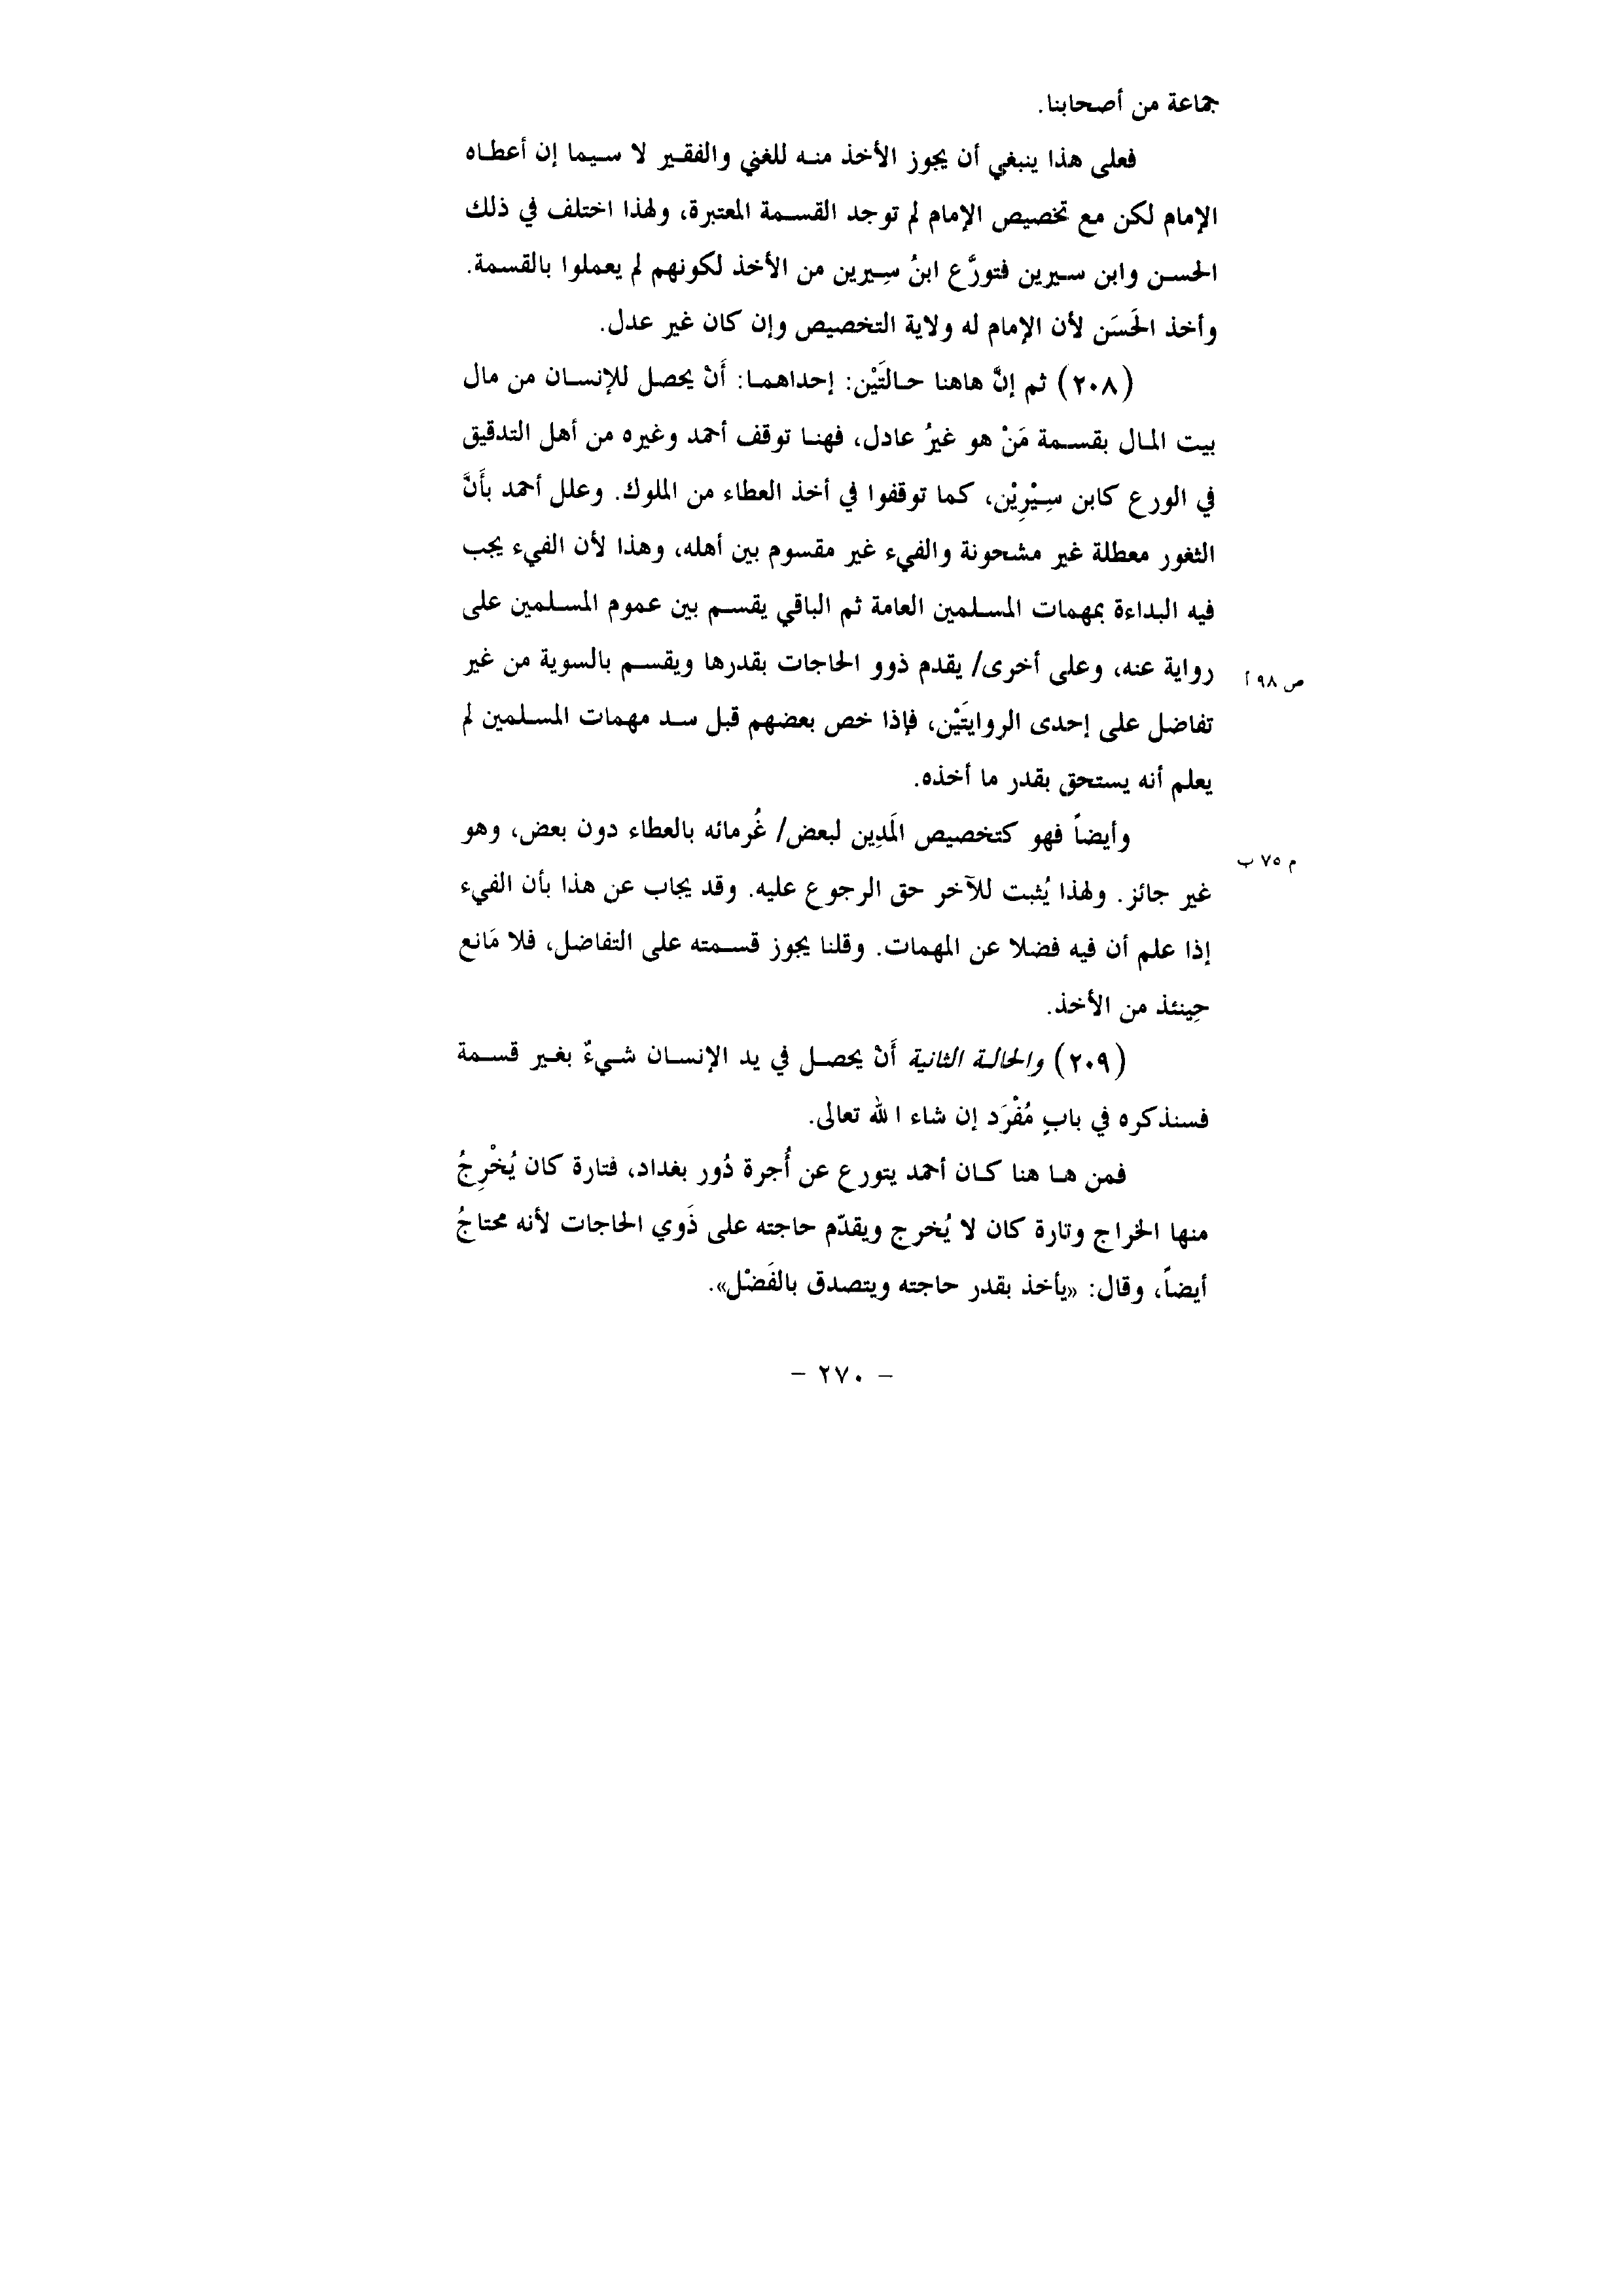 جماعة من أصحابنا.
فعلى هذا ينبغي أن يجوز الأخذ منه للغني والفقير لا سيما إن أعطاه
الإمام لكن مع تخصيص الإمام لم توجد القسمة المعتبرة، ولهذا اختلف في ذلك
الحسن وابن سيرين فتورَّع ابنُ سِيرين من الأخذ لكونهم لم يعملوا بالقسمة.
وأخذ الحَسَن لأن الإمام له ولاية التخصيص وإن كان غير عدل.
(٢٠٨) ثم إنَّ هاهنا حالتَيْن: إحداهما: أَنْ يحصل للإنسان من مال
بيت المال بقسمة مَنْ هو غيرُ عادل، فهنا توقف أحمد وغيره من أهل التدقيق
في الورع كابن سِيْرِيْن، كما توقفوا في أخذ العطاء من الملوك. وعلل أحمد بأَنَّ
الثغور معطلة غير مشحونة والفيء غير مقسوم بين أهله، وهذا لأن الفيء يجب
فيه البداءة بمهمات المسلمين العامة ثم الباقي يقسم بين عموم المسلمين على
رواية عنه، وعلى أخرى/ يقدم ذوو الحاجات بقدرها ويقسم بالسوية من غير
ص ٩٨ أ
تفاضل على إحدى الروايتَيْن، فإذا خص بعضهم قبل سد مهمات المسلمين لم
يعلم أنه يستحق بقدر ما أخذه.
وأيضاً فهو كتخصيص المَدِين لبعض/ غُرمائه بالعطاء دون بعض، وهو
م ٧٥ ب
غير جائز. ولهذا يُثبت للآخر حق الرجوع عليه. وقد يجاب عن هذا بأن الفيء
إذا علم أن فيه فضلا عن المهمات. وقلنا يجوز قسمته على التفاضل، فلا مَانع
حِينئذ من الأخذ.
(٢٠٩) والحالة الثانية أَنْ يحصل في يد الإنسان شيءٌ بغير قسمة
فسنذكره في بابٍ مُفْرَد إن شاء الله تعالى.
فمن ها هنا كان أحمد يتورع عن أُجرة دُور بغداد، فتارة كان يُخْرِجُ
منها الخراج وتارة كان لا يُخرج ويقدّم حاجته على ذَوي الحاجات لأنه محتاجُ
أيضاً، وقال: «يأخذ بقدر حاجته ويتصدق بالفَضْل».
- ٢٧٠ -